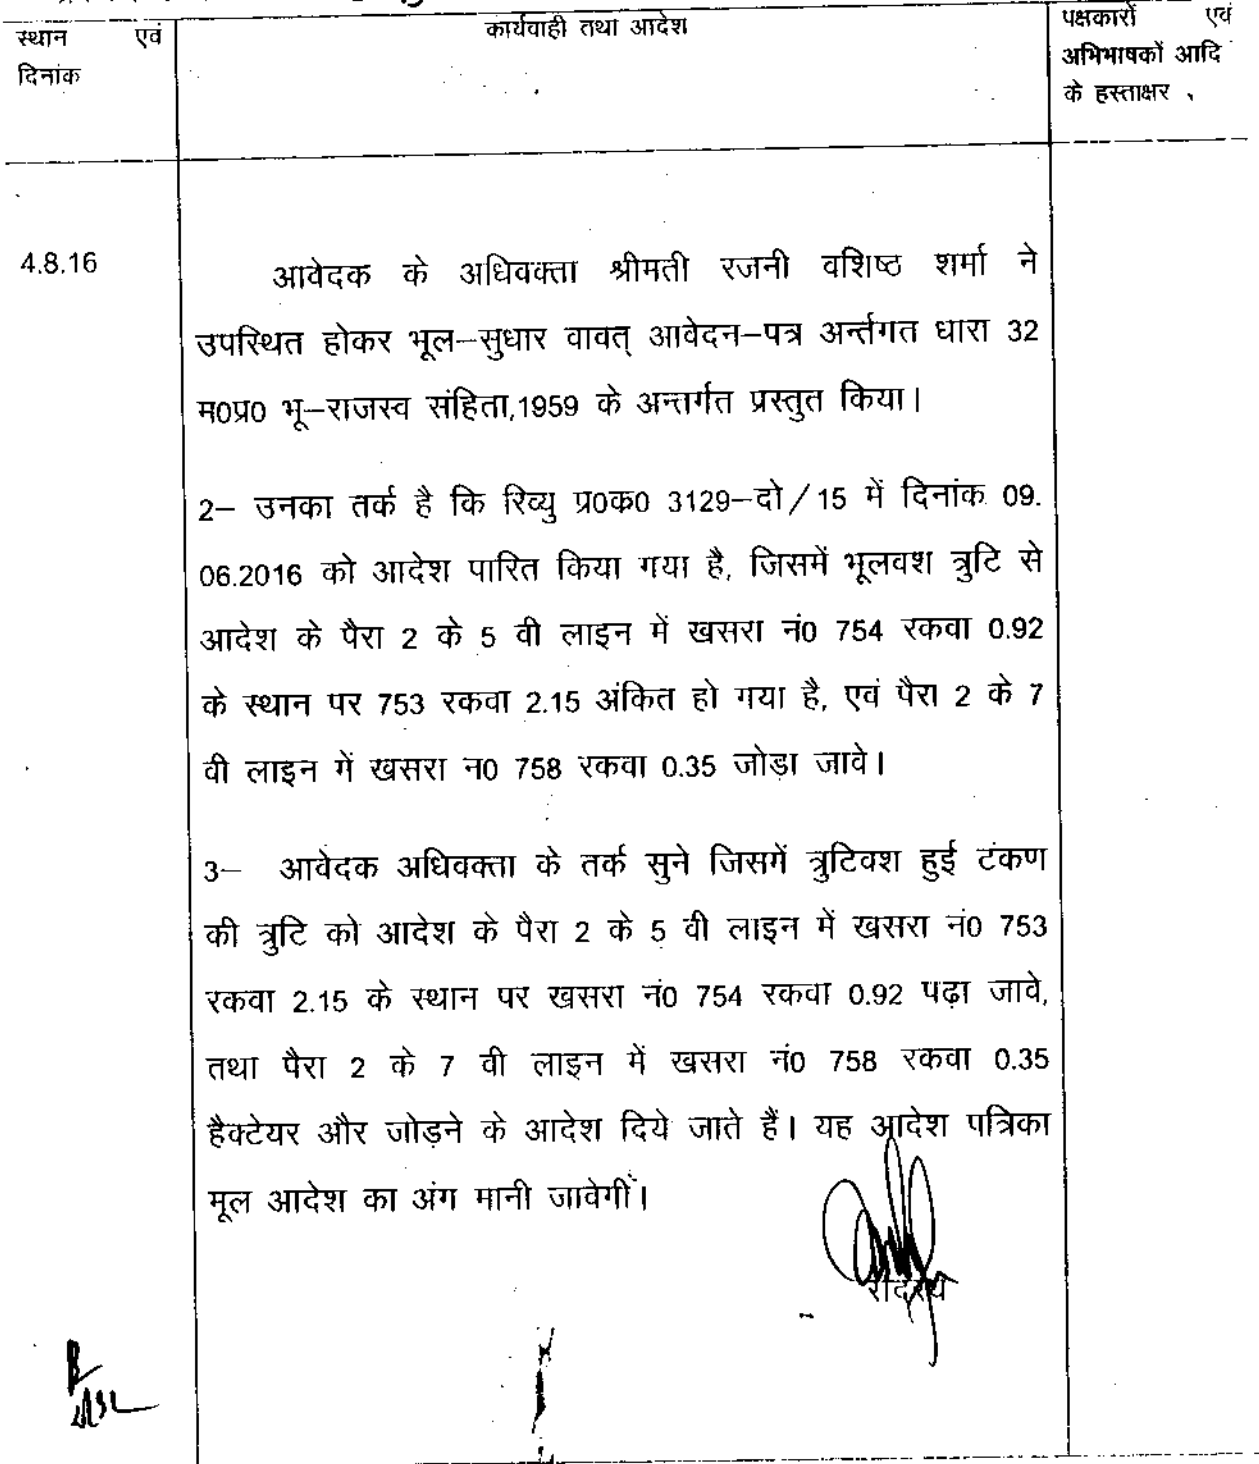 स्थान एवं
दिनांक
कार्यवाही तथा आदेश
पक्षकारों एवं
अभिभाषकों आदि
के हस्ताक्षर
4.8.16
आवेदक के अधिवक्ता श्रीमती रजनी वशिष्ठ शर्मा ने
उपस्थित होकर भूल–सुधार वावत् आवेदन–पत्र अर्न्तगत धारा 32
म0प्र0 भू–राजस्व संहिता,1959 के अन्तर्गत प्रस्तुत किया।
2– उनका तर्क है कि रिव्यु प्र0क0 3129–दो/15 में दिनांक 09.
06.2016 को आदेश पारित किया गया है, जिसमें भूलवश त्रुटि से
आदेश के पैरा 2 के 5 वी लाइन में खसरा नं0 754 रकवा 0.92
के स्थान पर 753 रकवा 2.15 अंकित हो गया है, एवं पैरा 2 के 7
वी लाइन में खसरा न0 758 रकवा 0.35 जोड़ा जावे।
3– आवेदक अधिवक्ता के तर्क सुने जिसमें त्रुटिवश हुई टंकण
की त्रुटि को आदेश के पैरा 2 के 5 वी लाइन में खसरा नं0 753
रकवा 2.15 के स्थान पर खसरा नं0 754 रकवा 0.92 पढ़ा जावे,
तथा पैरा 2 के 7 वी लाइन में खसरा नं0 758 रकवा 0.35
हैक्टेयर और जोड़ने के आदेश दिये जाते हैं। यह आदेश पत्रिका
मूल आदेश का अंग मानी जावेगीं।
सदस्य